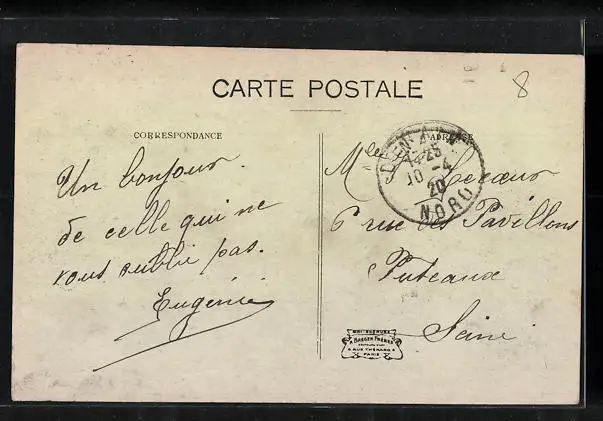 CARTE POSTALE
8
CORRESPONDANCE
ADRESSE
Un bonjour
de celle qui ne
vous oublie pas.
Eugénie
DENAIN
14 25
10 - 4
20
NORD
Melle
6 rue des Pavillons
Puteaux
Seine
PARIS